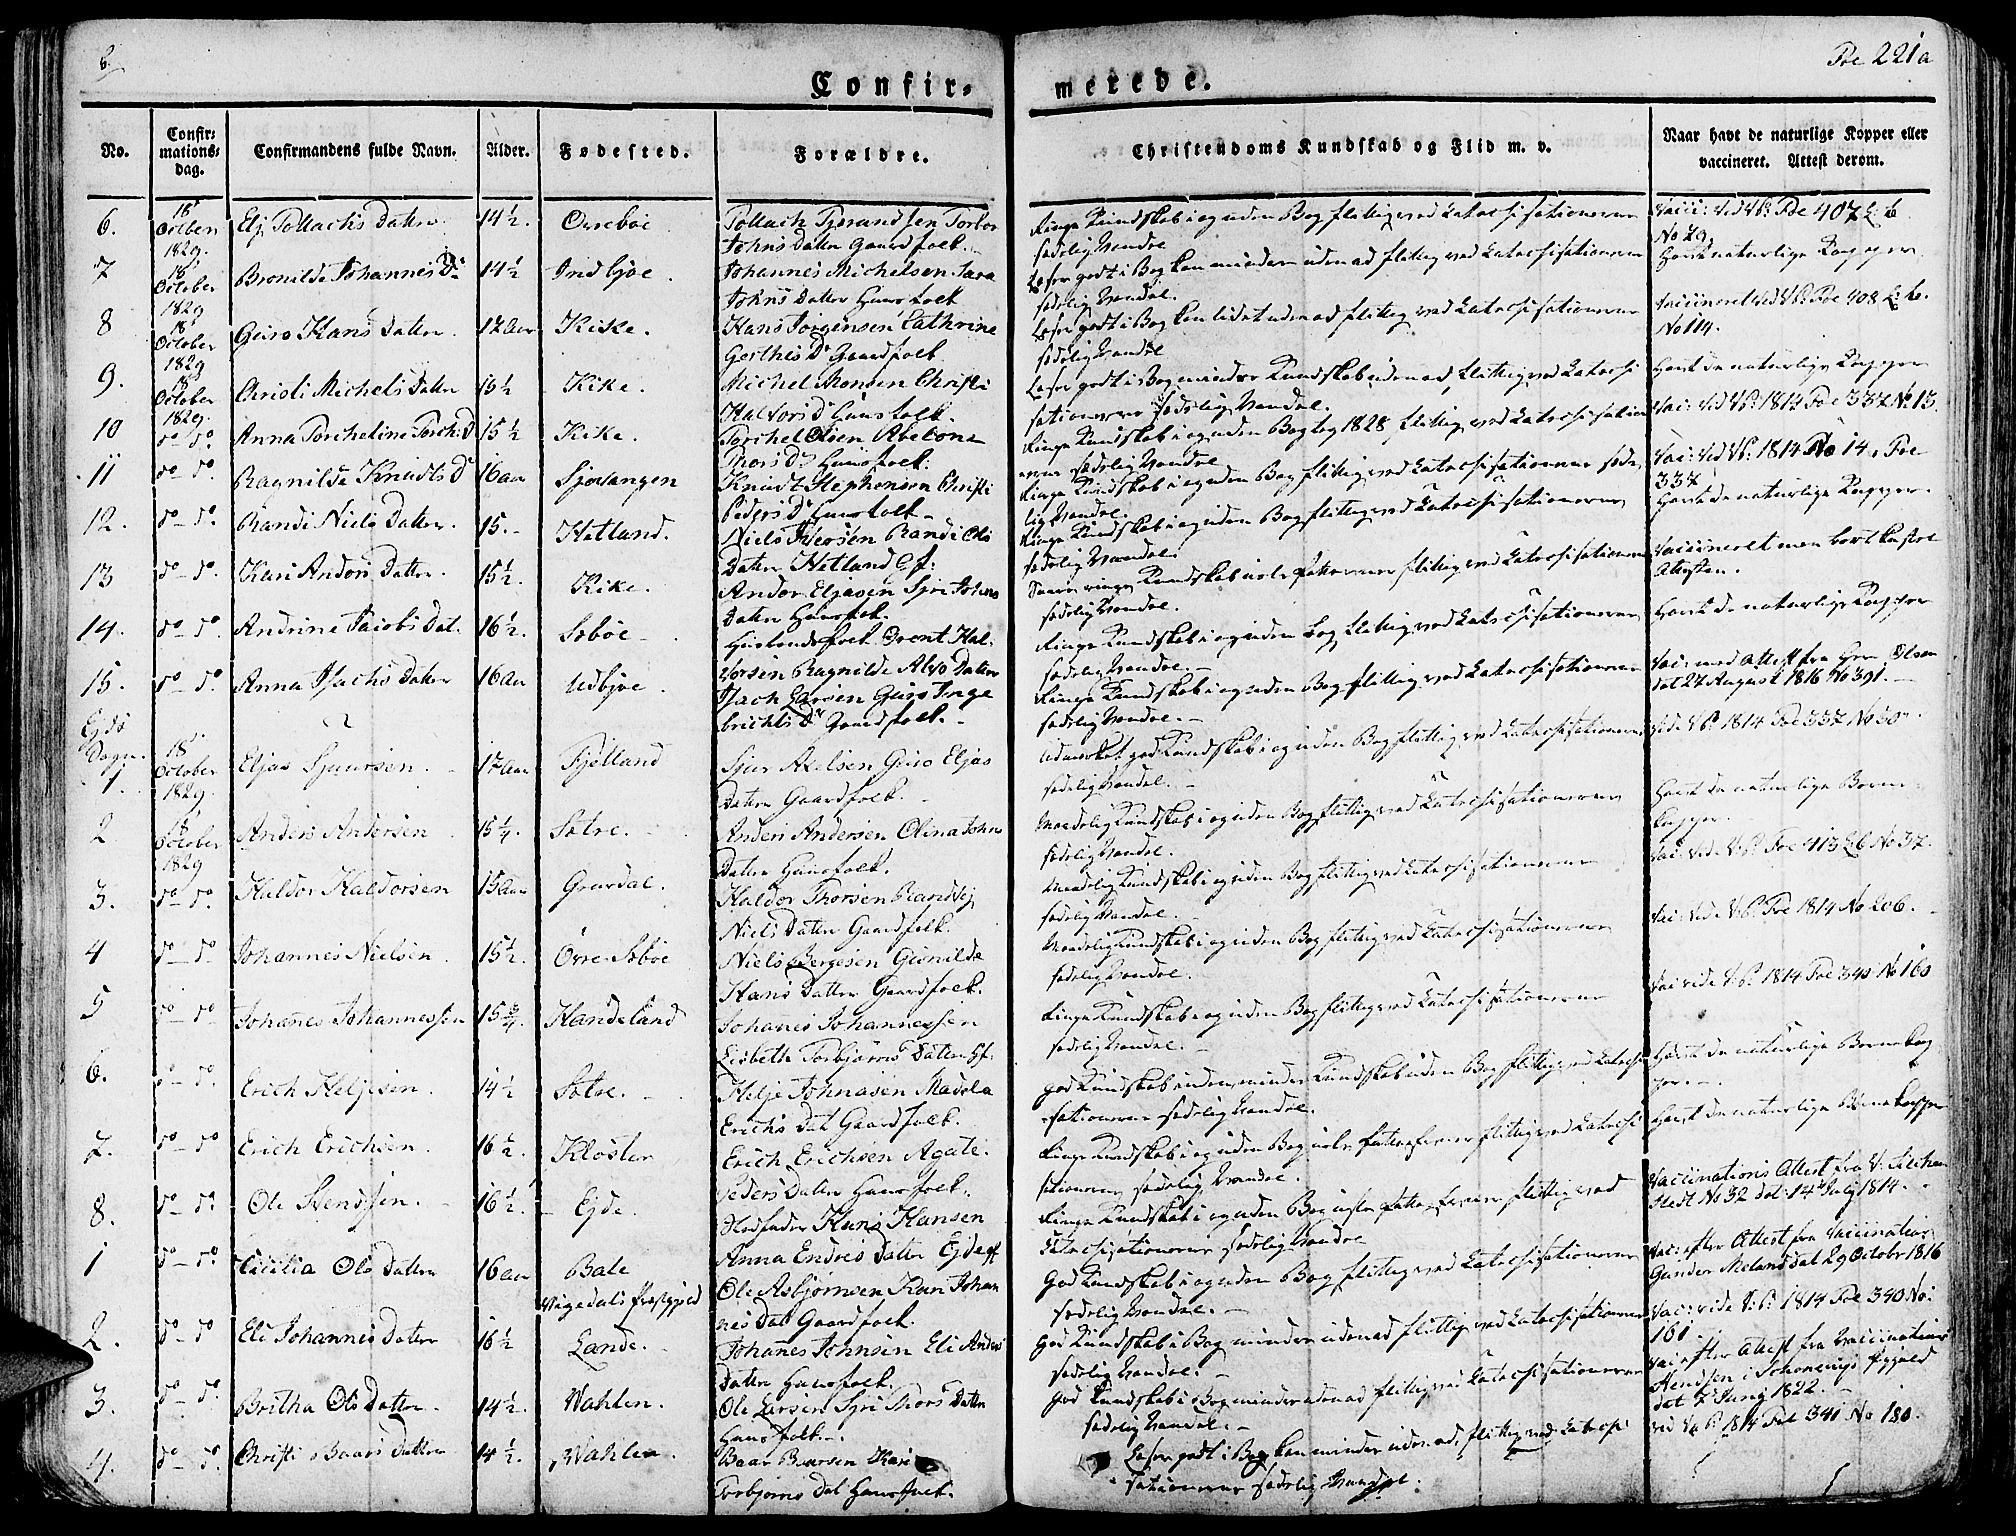 b.
Foe 221a
Confir-
merede.
No.
Confir-
mations-
dag.
Confirmandens fulde Navn.
Alder.
Fødested.
Forældre.
Christendoms Kundskab og Flid m. v.
Naar havt de naturlige Kopper eller
vaccineret. Attest derom.
6. 18 Octbr 1829. Elj Tollachs Datter 14½. Orrebøe Tollach Tjerandsen Torbor
Johns Datter Gaardfolk
Ringe Kundskab i og uden Bog flittig ved Catechisationerne
sædelig Vandel
Vacci: vid V.P. Foe 407 L. b.
No 79.
7 18 October 1829 Bronilde Johannes D. 14½ Indbjoe. Johannes Michelsen Sara
Johns Datter Huusfolk
Læser godt i Bog kan mindre udenad flittig ved Catechisationerne
sædelig Vandel.
Havt naturlige Kopper
8 18 October 1829 Guro Hans Datter 17 Aar Kike. Hans Jørgensen Cathrine
Gerthes Dr Gaardfolk
Læser godt i Bog kan lidet udenad flittig ved Catechisationerne
sædelig Vandel
Vaccineret vid V.P. Foe 408 L. b.
No 114.
9. 18 October 1829. Christi Michels Datter 15½ Kike. Michel Monsen Christi
Halvors D. Huusfolk.
Læser godt i Bog mindre Kundskab udenad, flittig ved Catechi
sationerne sædelig Vandel.
Havt de naturlige Kopper
10 do do. Anna Torcheline Torch: D 15½ Kike. Torchel Olsen Abelone
Thors D. Huusfolk.
Ringe Kundskab i og uden Bog 1828 flittig ved Catechisation
erne sædelig Vandel
Vac: vid V.P. 1814 Foe 337 No 13.
11 do do. Ragnilde Knudts D 16 aar Sjovangen Knudt Stephensen Christi
Peders D. Huusfolk
Ringe Kundskab i og uden Bog flittig ved Catechisationerne sæde
lig Vandel.
Vac: vid V.P. 1814 No 14. Foe
337
12. do do. Randi Niels Datter. 15. Hetland. Niels Iversen Randi Ols
Datter Hetland Gf:
Ringe Kundskab i og uden Bog flittig ved Catechisationerne
sædelig Vandel.
Havt de naturlige Kopper.
13 do do. Kari Anders Datter. 15½. Kike. Ander Eljasen Siri Johns
Datter Huusfolk.
sædelig Vandel.
Vaccineret men bortkastet
Attesten.
14. do do. Andrine Jacobs Dat. 16½. Søbøe Huusbondsfolk Brent Hal-
vorsen Ragnilde Alvs Datter
Ringe Kundskab i og uden Bog flittig ved Catechisationerne
sædelig Vandel.
Havt de naturlige Kopper
15. do do. Anna Isachs Datter 16 Aar Udbjoe. Isach Larsen Guro Inge
brichts Dr Gaardfolk.
Ringe Kundskab i og uden Bog flittig ved Catechisationerne
sædelig Vandel.
Vac: med Attest fra Olsen
dat 27 August 1816 No 391.
1. 18 October 1829. Eljas Sjuursen. 17 Aar Fjelland Sjur Axelsen Guro Eljas
Datter Gaardfolk.
Udmærket god Kundskab i og uden Bog flittig ved Catechisationerne
sædelig Vandel.
vide V.P. 1814 Foe 337 No 30.
2 18 October 1829 Anders Andersen 15¼. Sætre. Anders Andersen Olina Johns
Datter Huusfolk.
Maadelig Kundskab i og uden Bog flittig ved Catechisationerne
sædelig Vandel.
Havt de naturlige Børne-
kopper.
3. do do. Haldor Haldorsen 15 Aar Graedal. Haldor Thorsen Brandvig
Niels Datter Gaardfolk.
Maadelig Kundskab i og uden Bog flittig ved Catechisationerne
sædelig Vandel.
Vac: vide V.P. Foe 413 L. b No 37.
4 do do. Johannes Nielsen. 15½. Øvre Søbøe Niels Bergesen Gunilde
Hans Datter Gaardfolk.
Maadelig Kundskab i og uden Bog flittig ved Catechisationerne
sædelig Vandel.
Vac: vide V.P. Foe 1814 No 206.
5 do do. Johanes Johannessen 15¾. Handeland Johanes Johannessen
Lisbeth Torbjørns Datter Gf:
Ringe Kundskab i og uden Bog flittig ved Catechisationerne
sædelig Vandel.
Vac vide V.P. 1814 Foe 340 No 160
6. do do. Erich Heljesen 14½ Sætre. Helje Johnasen Madela
Erichs Dat Gaardfolk.
god Kundskab inden, mindre Kundskab uden Bog flittig ved Catechi
sationerne sædelig Vandel.
Havt de naturlige Børnekop
per.
7. do do. Erich Erichsen. 16½. Kloster Erich Erichsen Agate.
Peders Datter Huusfolk.
sationerne, sædelig Vandel.
Havt de naturlige Børnekopper
8. do do. Ole Svendsen. 16½. Ejde. Stedfader Hans Hansen
Anna Endres Datter Ejde Gf
Catechisationerne sædelig Vandel
Vaccinations Attest fra
No 32 dat: 14 July 1814.
1 do do. Cicilia Ols Datter 16 aar Bale
Vigedals Præstegjeld
Ole Asbjørnsen Kari Johan
nes Dat Gaardfolk.
God Kundskab i og uden Bog flittig ved Catechisationerne
sædelig Vandel.
Vac: efter Attest fra Vaccinatør
Gunder Meland dat 29 Octobr 1816
2. do do. Eli Johannes Datter 16½ Lande. Johanes Johnsen Eli Anders
Datter Huusfolk.
God Kundskab i Bog mindre udenad flittig ved Catechisationerne
sædelig Vandel.
Vac: vide V.P. 1814 Foe 340 No:
161.
3. do do. Britha Ols Datter. 14½. Vahlen. Ole Larsen Syri Thors Datter
Huusfolk.
God Kundskab i Bog mindre udenad flittig ved Catechisationerne
sædelig Vandel.
Vac: efter Attest fra Vaccinatør
Svendsen i Schonevigs Præstegjeld
dat 7 Juny 1822.
4. do do. Christi Baars Datter 14½. Vahlen. Baar Baarsen Kari
Torbjørns Dat Huusfolk.
Læser godt i Bog kan mindre udenad, flittig ved Catechi
sationerne sædelig Vandel.
vid V.P. 1814 Foe 341 No 180.